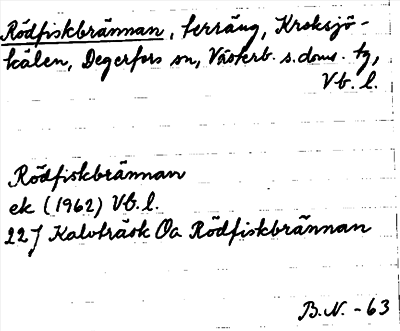 Rödfiskbrännan, terräng, Kroksjö-
kälen, Degerfors sn, Västerb. s. doms. tg,
Vb. l.
Rödfiskbrännan
ek (1962) Vb. l.
22 J Kalvträsk Oa Rödfiskbrännan
B.N. -63